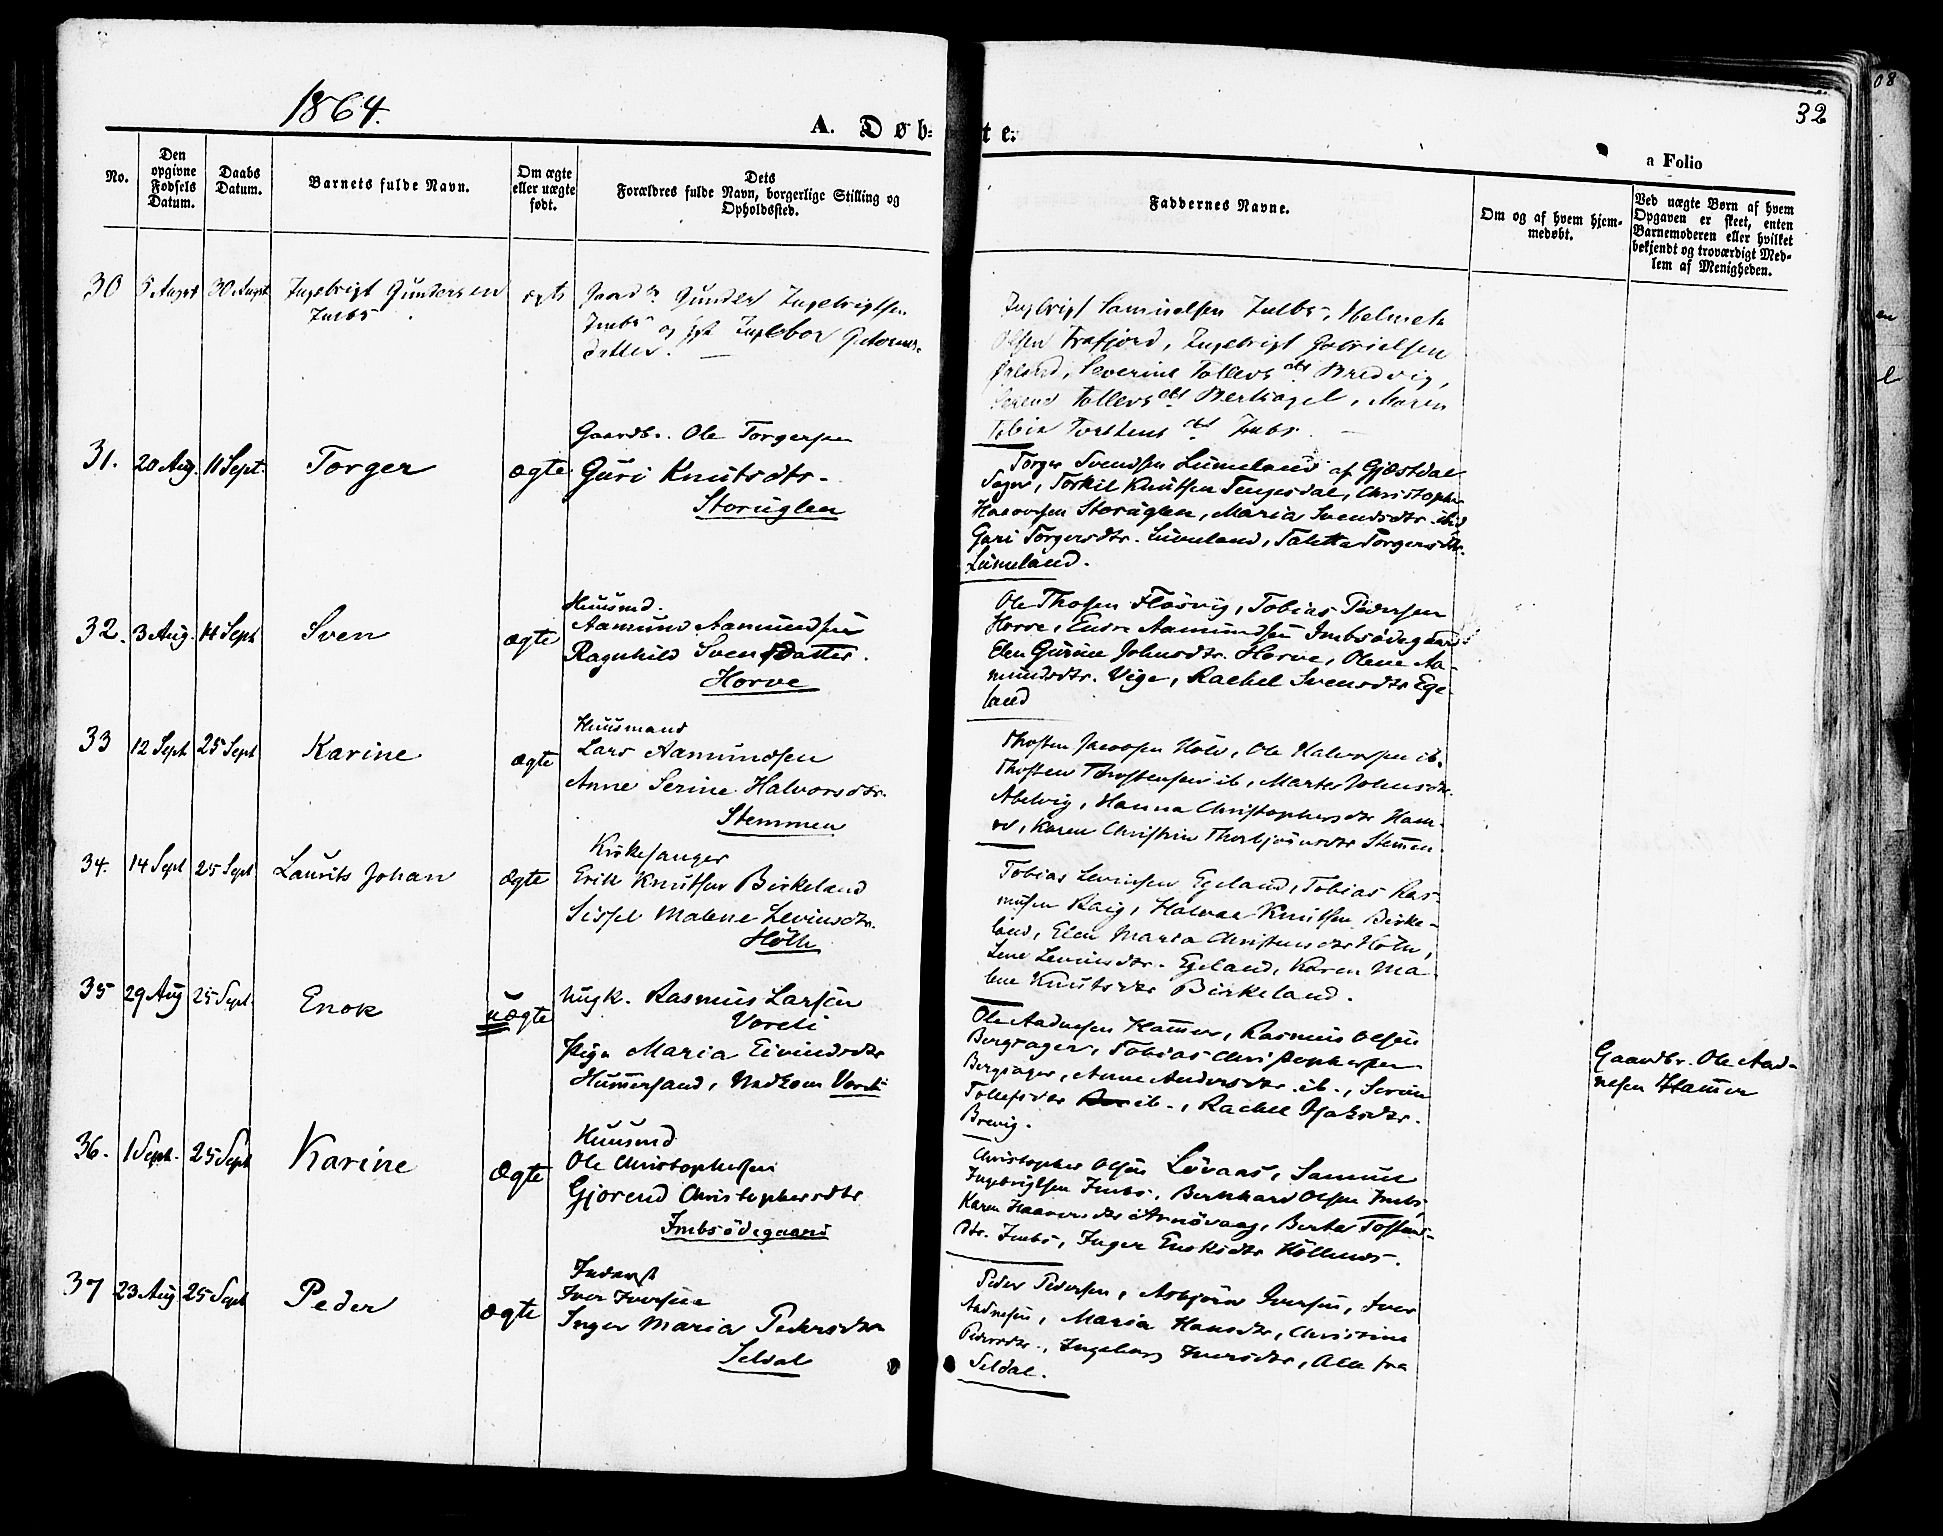 1864.
A. Døb-
te.
32
a Folio
No.
Den opgivne Fødsels Datum.
Daabs Datum.
Barnets fulde Navn.
Om ægte eller uægte født.
Dets
Forældres fulde Navn, borgerlige Stilling og Opholdssted.
Faddernes Navne.
Om og af hvem hjemmedøbt.
Ved uægte Børn af hvem
Opgaven er skeet, enten
Barnemoderen eller hvilket
bekjendt og troværdigt Med-
lem af Menigheden.
30
5 August
30 August
Ingebrigt Gundersen
Imbs
Gunder Ingebrigtsen
Imbs og
datter.
Samuelsen
Olsen Frafjord, Ingebrigt Gabrielsen
Severine Tollevs dt Bredvig,
Tollevs dt Bersagel, Maren
dt Imbs
31.
20 Aug.
11 Sept.
Torger
ægte
Gaardb. Ole Torgersen
Guri Knutsdtr.
Storuglen
Torger Svendsen Limeland af Gjæstdal
Sogn, Torkil Knutsen Tengesdal, Christopher
Storuglen, Maria Svendsdtr. ibid
Guri Torgersdtr. Limeland, Taletta Torgersdtr.
Limeland.
32.
3 Aug.
11 Sept
Sven
ægte
Huusmd.
Aamund Aamundsen
Ragnhild Svensdatter.
Horve
Ole Thosen Flasvig, Tobias Pedersen
Horve, Endre Aamundsen Imbsödegaard
Elen Gurine Johnsdtr. Horve, Olene Aa-
mundsdtr. Vige, Rachel Svensdtr Ege-
land
33
12 Sept
25 Sept
Karine
ægte
Huusmand
Lars Aamundsen
Anne Serine Halvorsdtr.
Stemmen
Thosten Jacobsen Hole, Ole Halvorsen ib.
Thosten Thostensen ib, Marte Johnsdtr.
Abelvig, Hanna Christophersdtr Ham-
re, Karen Christine Thorbjørnsdtr Stemen.
34.
14 Sept
25 Sept
Laurits Johan
Ægte
Kirkesanger
Erik Knutsen Birkeland
Sissel Malene Levinsdtr.
Hölle
Tobias Levinsen Egeland, Tobias Ras-
musen Knutsen Birke-
land, Elen Maria Christensdtr Hölle,
Lene Levinsdtr. Egeland, Karen Ma-
lene Knutsdtr Birkeland.
35
29 Aug
25 Sept.
Enok
uægte
Ungk. Rasmus Larsen
Voreli
Pige Maria Eivindsdtr
Hummersand, Vedkom Voreli
Ole Aadnesen Hamer, Rasmus Olsen
Bergsager, Tobias Christophersen
Bergsager, Anne Andersdtr ib., Serine
Tollefsdtr ib., Rachel
Brevig.
Gaardbr. Ole Aad-
nesen Hamer
36.
1 Sept.
25 Sept
Karine
Ægte
Huusmd
Ole Christophersen
Gjorend Christophersdtr
Imbsödegaard
Christopher Olsen Lövaas, Samuel
Ingebrigtsen Imbs, Bernhard Olsen Imbs,
Karen Arnövaag, Berta Tostens-
dtr. Imbs, Inger Enoksdtr
37
23 Aug
25 Sept
Peder
ægte
Inderst
Iver Iversen
Inger Maria Pedersdtr
Seldal
Peder Pedersen, Asbjörn Iversen, Iver
Aadnesen, Maria Hansdtr, Christine
Pedersdtr., Ingeborg Iversdtr, Alle fra
Seldal.